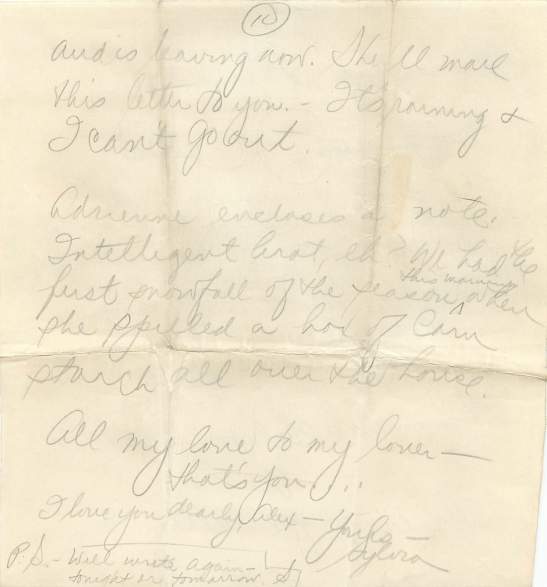 and is leaving now. She'll mail
this letter to you. - It's raining &
I can't go out.
Adrienne encloses a note.
Intelligent brat, eh? We had the
first snowfall of the season this morning when
she spilled a box of Corn
starch all over the house.
All my love to my lover —
that's you...
I love you dearly Alex —
Sylvia
P.S. - Will write again -
tonight or tomorrow. S